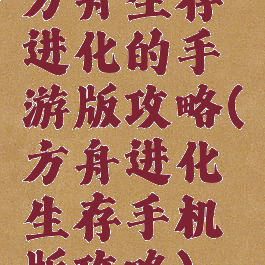 方舟生存
进化的手
游版攻略(
方舟进化
生存手机
版攻略)